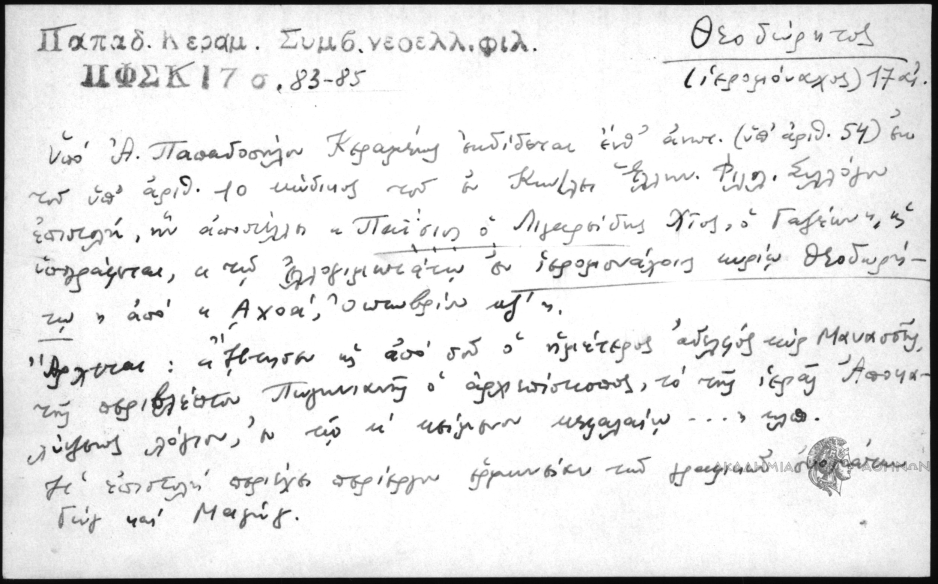 Παπαδ. Κεραμ. Συμβ. νεοελλ. φιλ.
ΠΦΣΚ 17 σ. 83-85
Θεοδώρητος
(ἱερομόναχος) 17 αἰ.
Ὑπό Ἀ. Παπαδοπούλου Κεραμέως ἐκδίδεται ἐνθ' ἀνωτ. (ὑπ' ἀριθ. 54) ἐκ
τοῦ ὑπ' ἀριθ. 10 κώδικος τοῦ ἐν Κων/λει Ἑλλην. Φιλολ. Συλλόγου
ἐπιστολή, ἥν ἀποστέλλει « Παΐσιος ὁ Λιγαρείδης Χῖος, ὁ Γαζέων», ὡς
ὑπογράφεται, « τῷ ἐλλογιμωτάτῳ ἐν ἱερομονάχοις κυρίῳ Θεοδωρή-
τῳ » ἀπό « Ἀχοᾶ, Ὀκτωβρίου κζ' ».
Ἄρχεται: « Ἐζήτησεν ὡς ἀπό σοῦ ὁ ἡμέτερος ἀδελφός κύρ Μανασσῆς,
τῆς περιβλέπτου Πωγωνιανῆς ὁ ἀρχιεπίσκοπος, τό τῆς ἱερᾶς Ἀποκα-
λύψεως λόγιον, ἐν τῷ κ' κείμενον κεφαλαίῳ ....» κλπ.
Ἡ ἐπιστολή περιέχει περίεργον ἑρμηνείαν τῶν γραφικῶν ὀνομάτων
Γώγ καί Μαγώγ.
ΑΚΑΔΗΜΙΑ ΑΘΗΝΩΝ